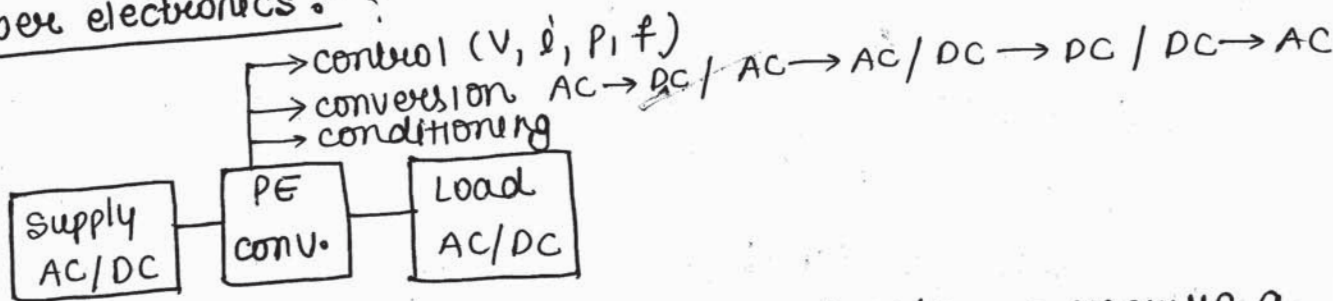 electronics.
control (V, i, P, f)
conversion AC → DC / AC → AC / DC → DC / DC → AC
conditioning
Supply
AC/DC
PE
conv.
Load
AC/DC